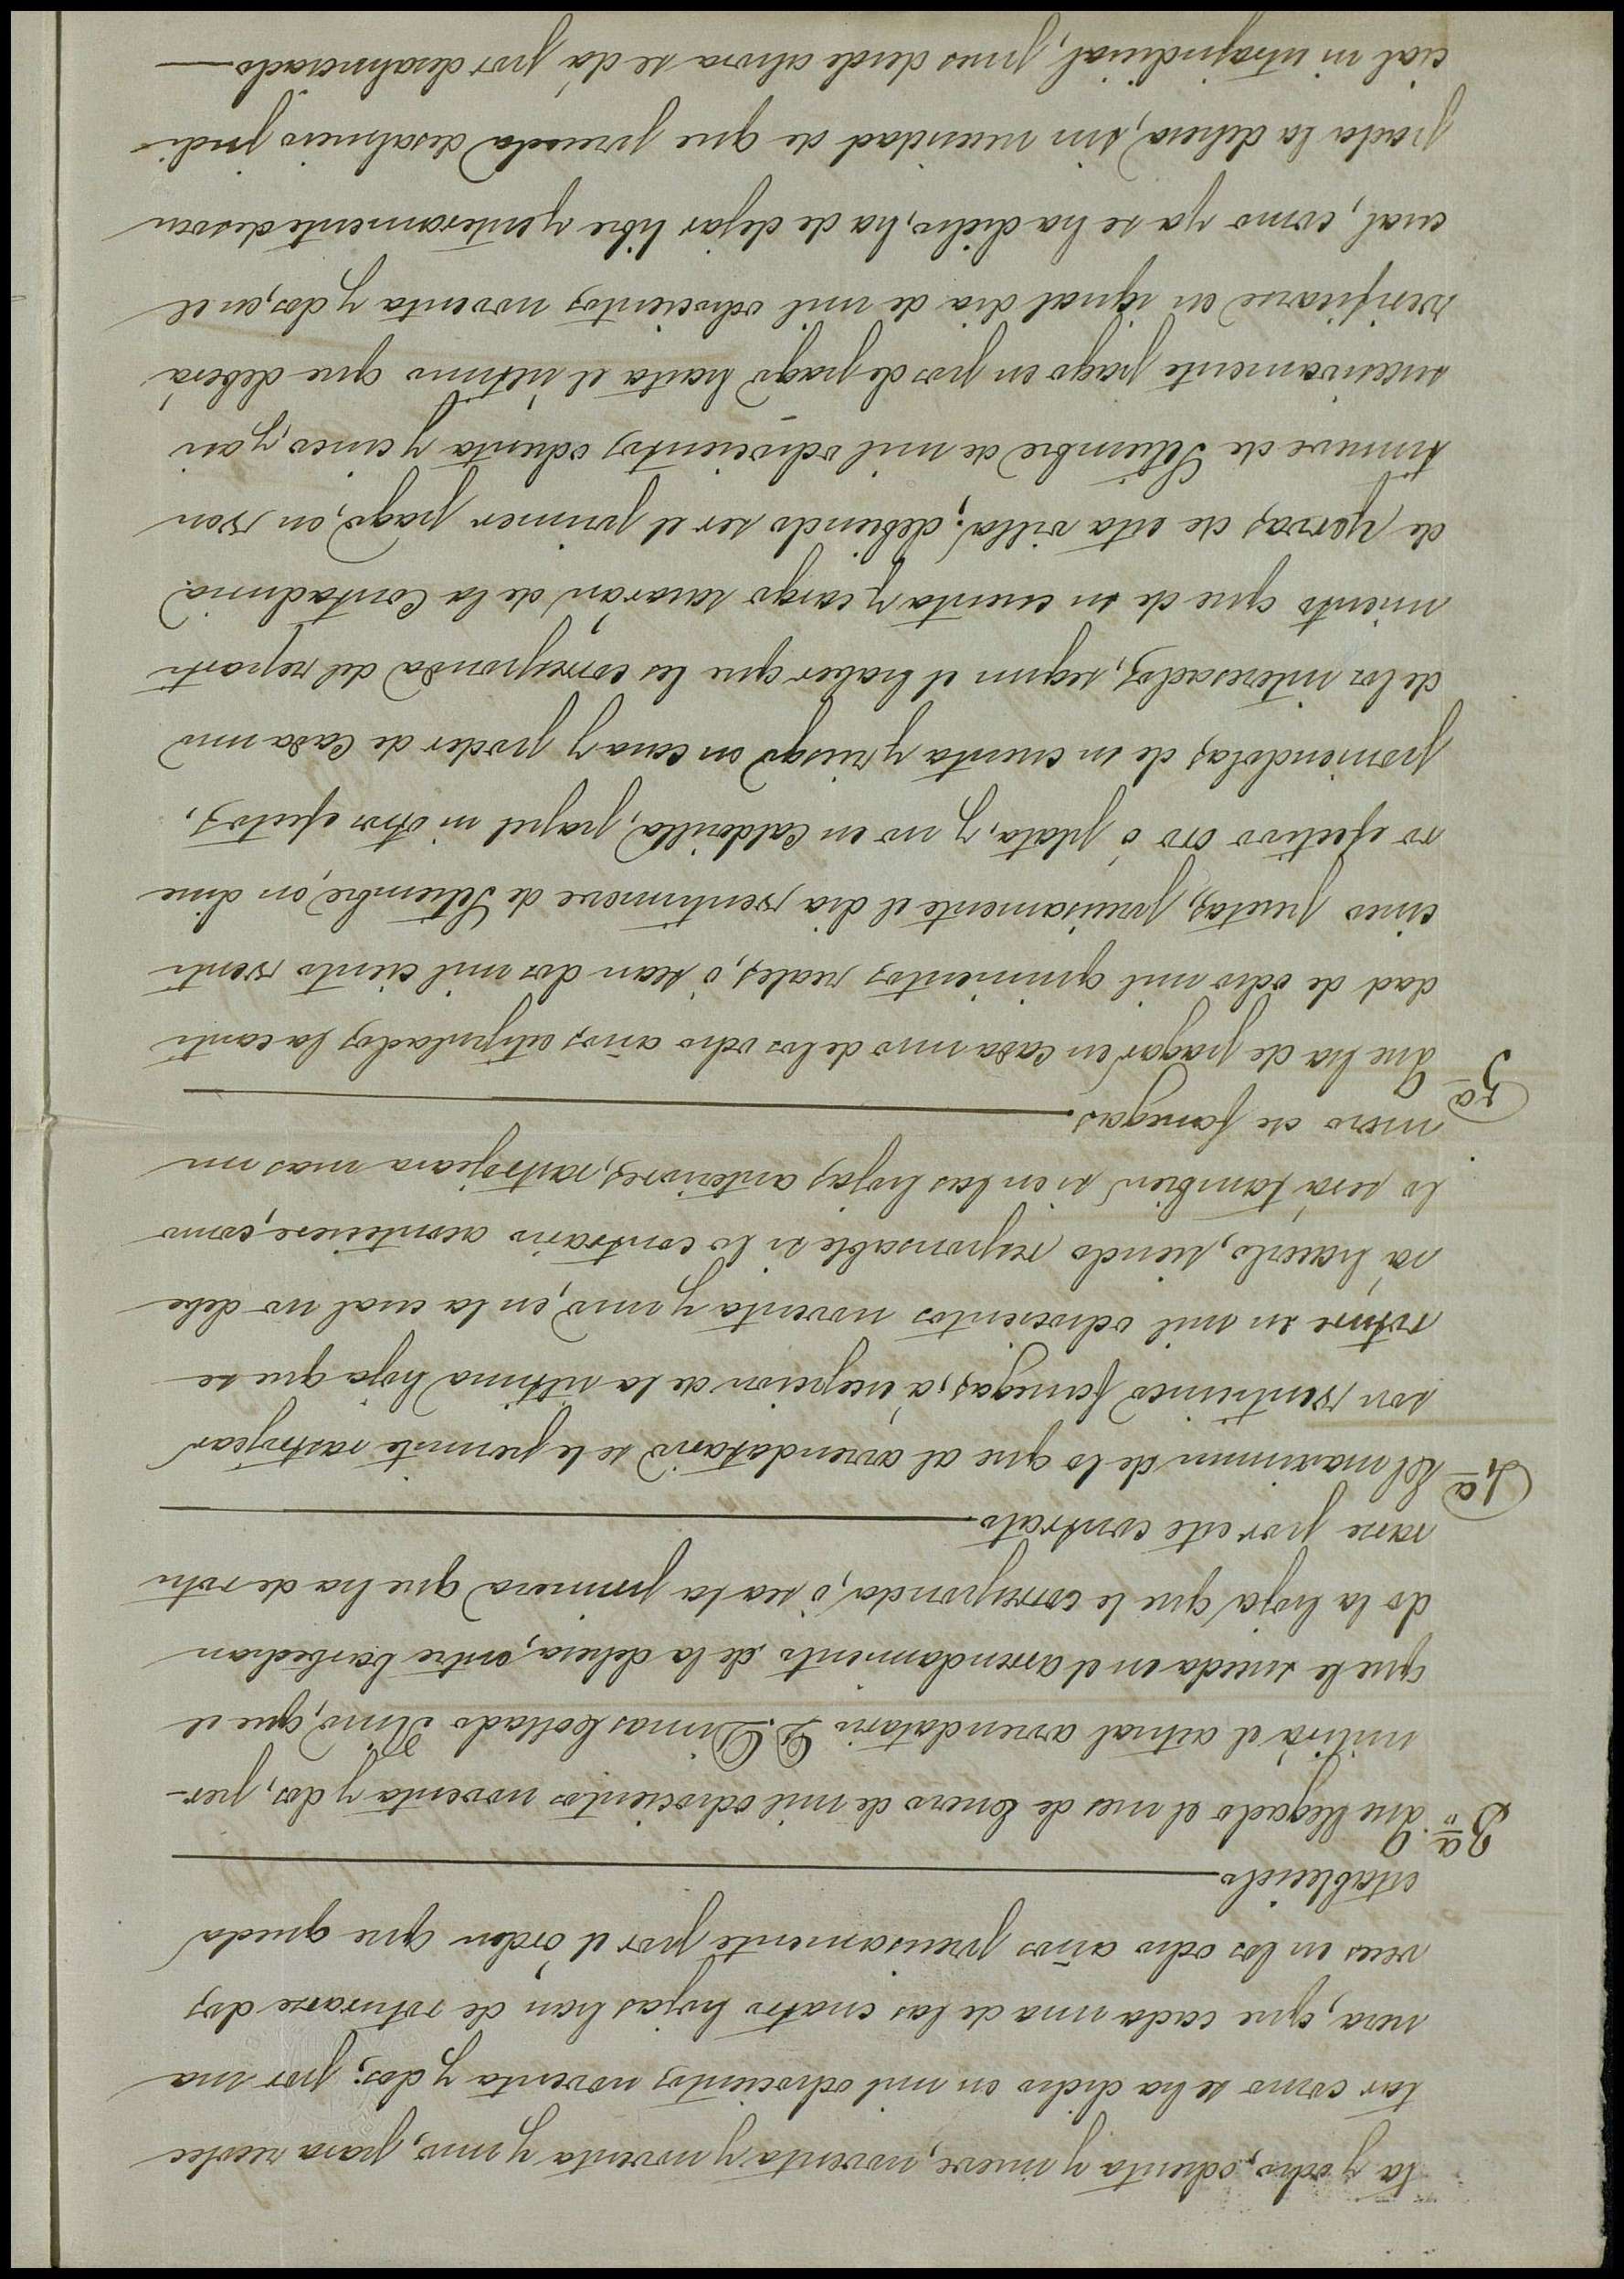 ta y ocho, ochenta y nueve, noventa y noventa y uno, para recolec
tar como se ha dicho en mil ochocientos noventa y dos; por ma
nera, que cada una de las cuatro hojas han de roturarse dos
veces en los ocho años precisamente por el órden que queda
establecido
3ª Que llegado el mes de Enero de mil ochocientos noventa y dos, per-
mitirá el actual arrendatario D. Dimas Collado que el
que le suceda en el arrendamiento de la dehesa, entre barbechan
do la hoja que le corresponda, ó sea la primera que ha de rotu
rarse por este contrato
4ª El maximun de lo que al arrendatario se le permite rastrojear
son venticinco fanegas, á ecepcion de la ultima hoja que se
roture en mil ochocientos noventa y uno, en la cual no debe
rá hacerlo, siendo responsable si lo contrario aconteciese, como
lo será tambien si en las hojas anteriores, rastrojeara mas nu
mero de fanegas.
5ª Que ha de pagar en cada uno de los ocho años estipulados la canti
dad de ocho mil quinientos reales, ó sean dos mil ciento venti
cinco pesetas, precisamente el dia ventinueve de Setiembre, en dine
ro efectivo oro ó plata, y no en Calderilla, papel ni otros efectos,
poniendolas de su cuenta y riesgo en casa y poder de Cada uno
de los interesados, segun el haber que les corresponda del reparti
miento que de su cuenta y cargo sacarán de la Contaduria
de Yervas de esta villa; debiendo ser el primer pago, en ven
tinueve de Setiembre de mil ochocientos ochenta y cinco, y asi
sucesivamente pago en pos de pago hasta el último que deberá
verificarse en igual dia de mil ochocientos noventa y dos, en el
cual, como ya se ha dicho, ha de dejar libre y enteramente desocu
pada la dehesa, sin necesidad de que preceda desahucio judi-
cial ni estrajudicial, pues desde ahora se dá por desahuciado